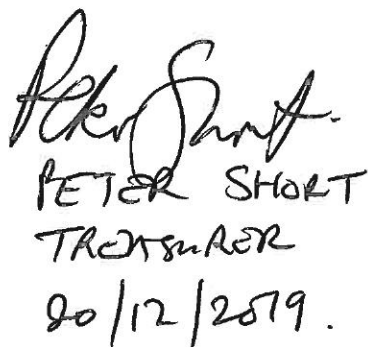 Peter Short.
PETER SHORT
TREASURER
20/12/2019.